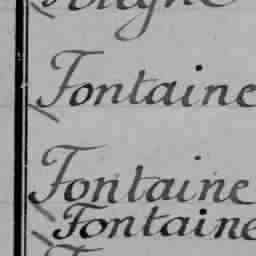 Fontaine
Fontaine
Fontaine